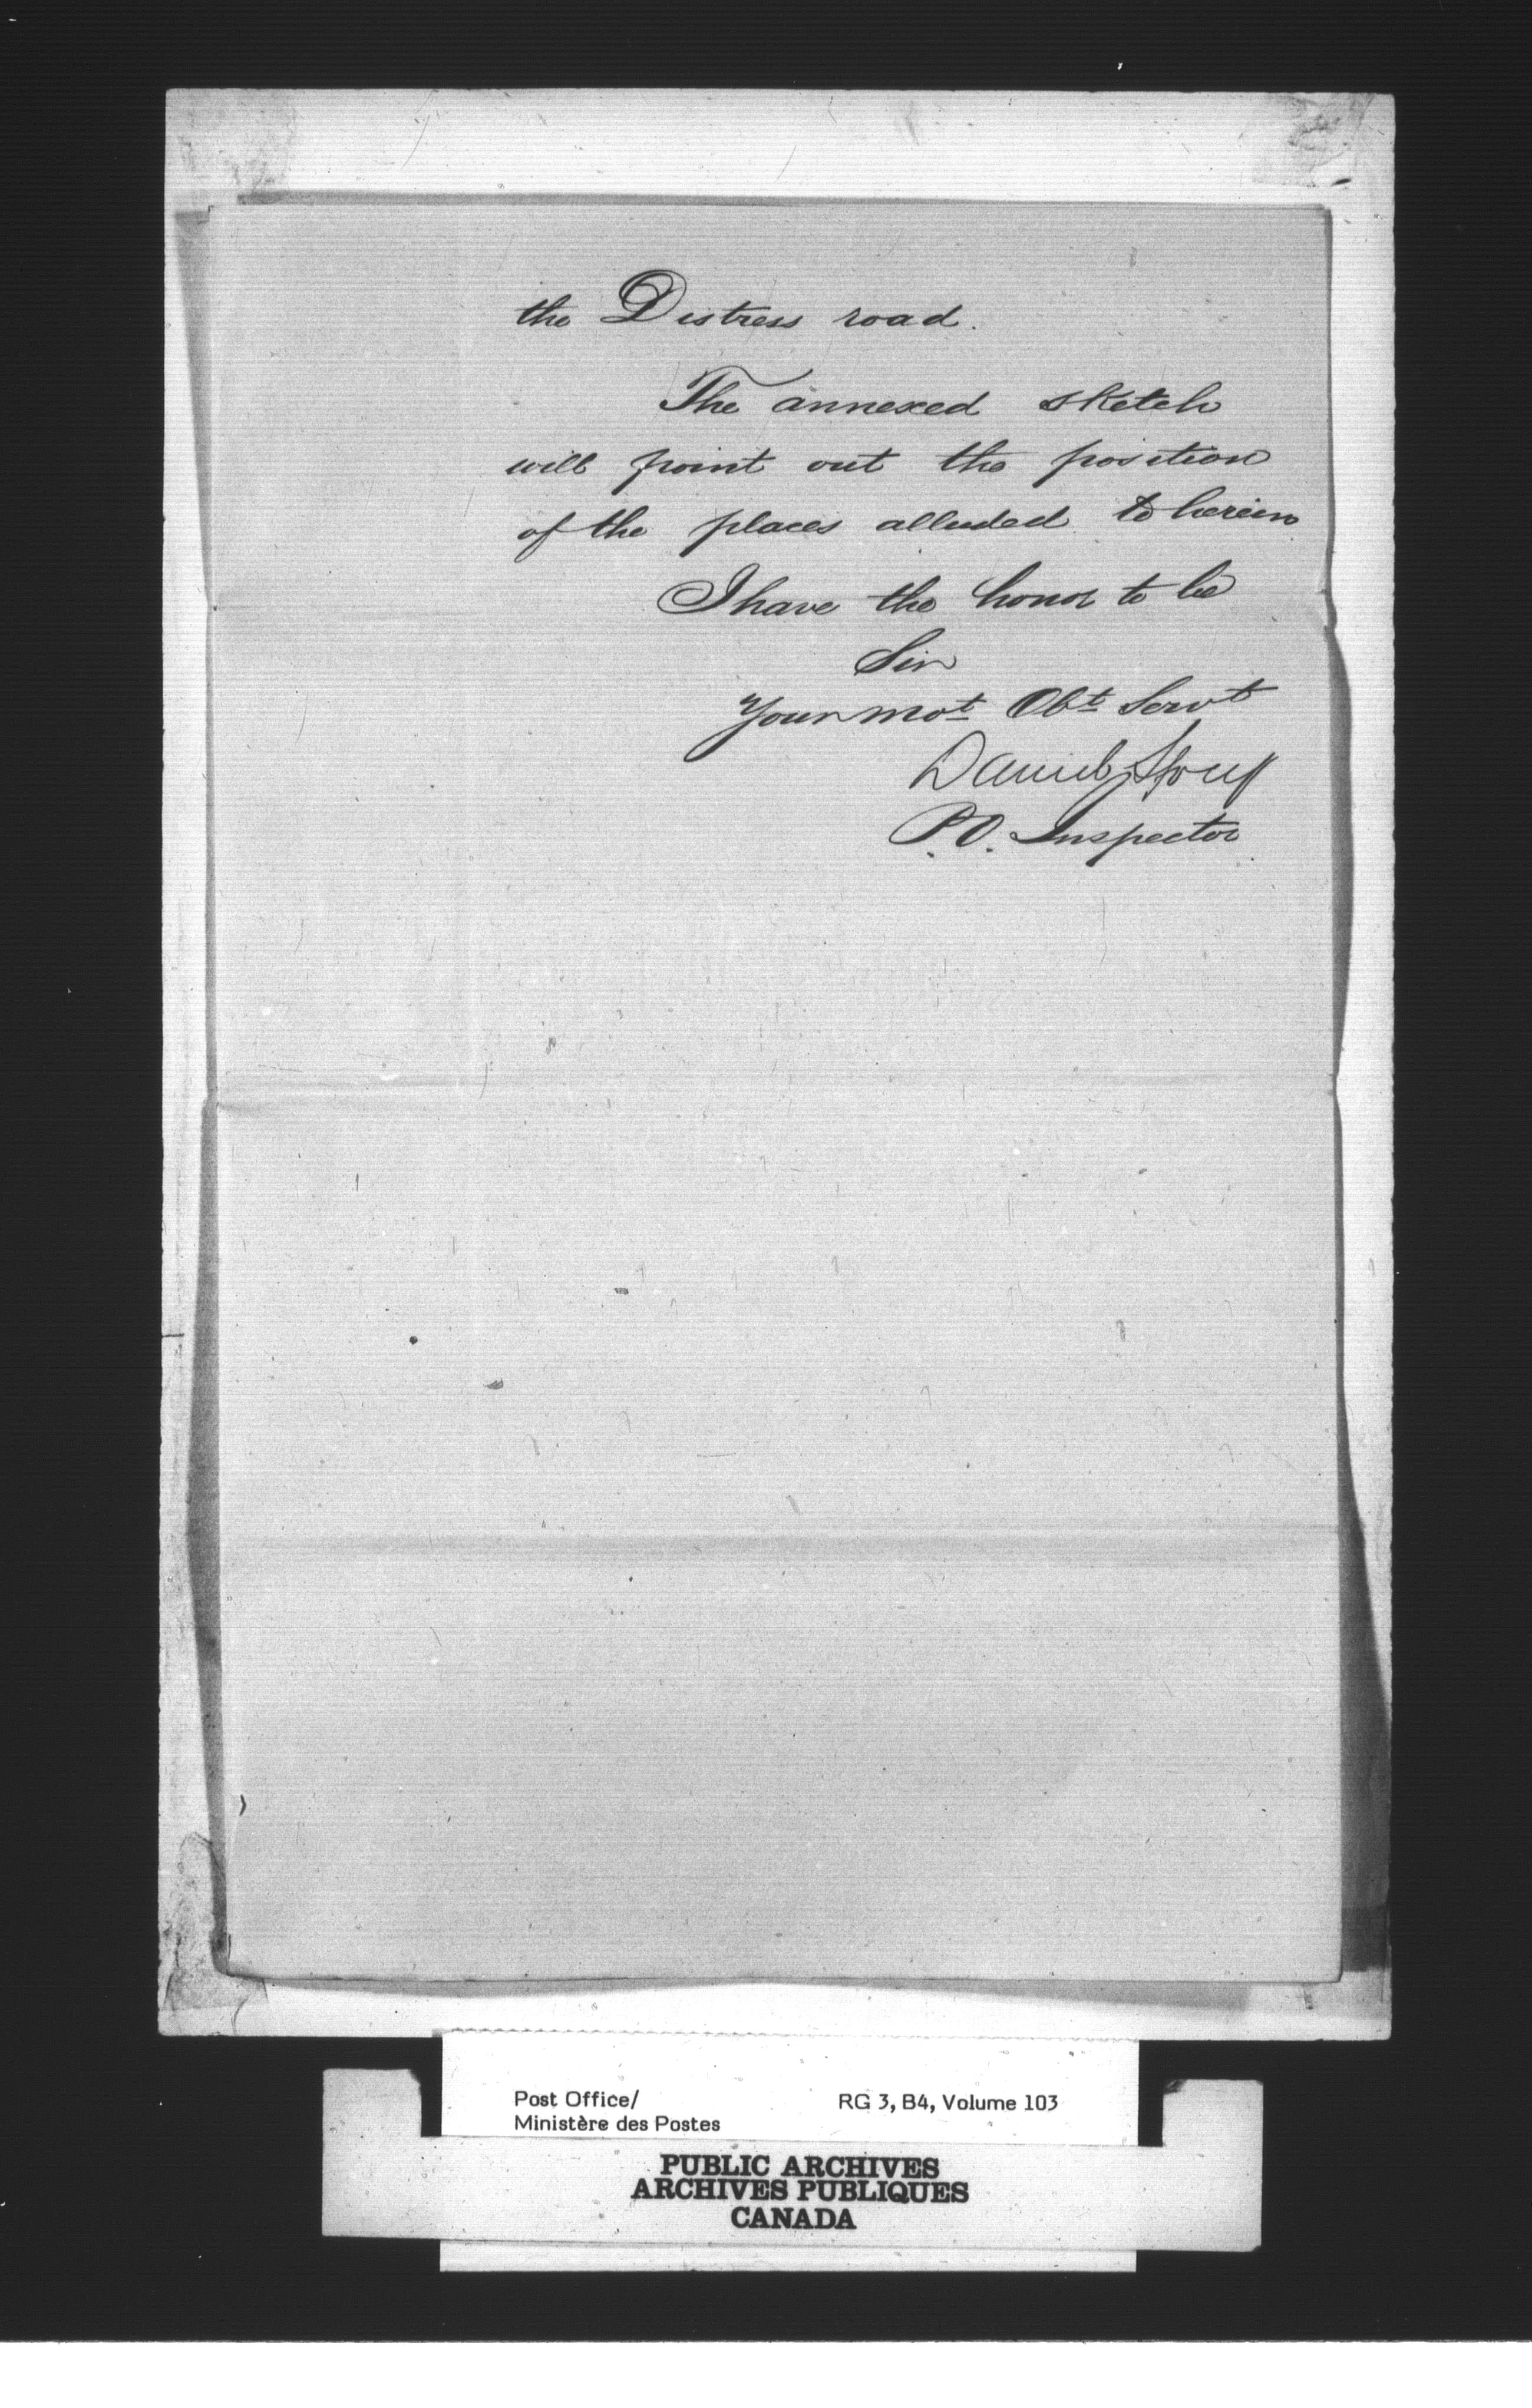 the Distress road.
The annexed sketch
will point out the position
of the places alluded to herein
I have the honor to be
Sir
Your mot Obt Servt
Daniel
P.O. Inspector
Post Office/ RG 3, B4, Volume 103
Ministère des Postes
PUBLIC ARCHIVES
ARCHIVES PUBLIQUES
CANADA